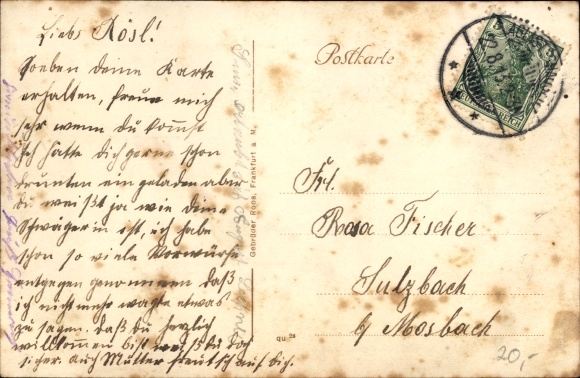 Liebe Rösl!
Soeben deine Karte
erhalten, freue mich
sehr wenn du kommst
Ich hatte dich gerne schon
drunten eingeladen aber
du weißt ja wie deine
Schwägerin ist, ich habe
schon so viele Vorwürfe
entgegen genommen daß
ich nicht mehr wagte etwas
zu sagen. daß du herzlich
willkommen bist weißt du doch
sicher. Auch Mutter freut sich auf dich.
Gebrüder Roos, Frankfurt a. M.
Postkarte
DEUTSCHES REICH
Frl.
Rosa Fischer
Sulzbach
b/ Mosbach
qu. 28
20,-